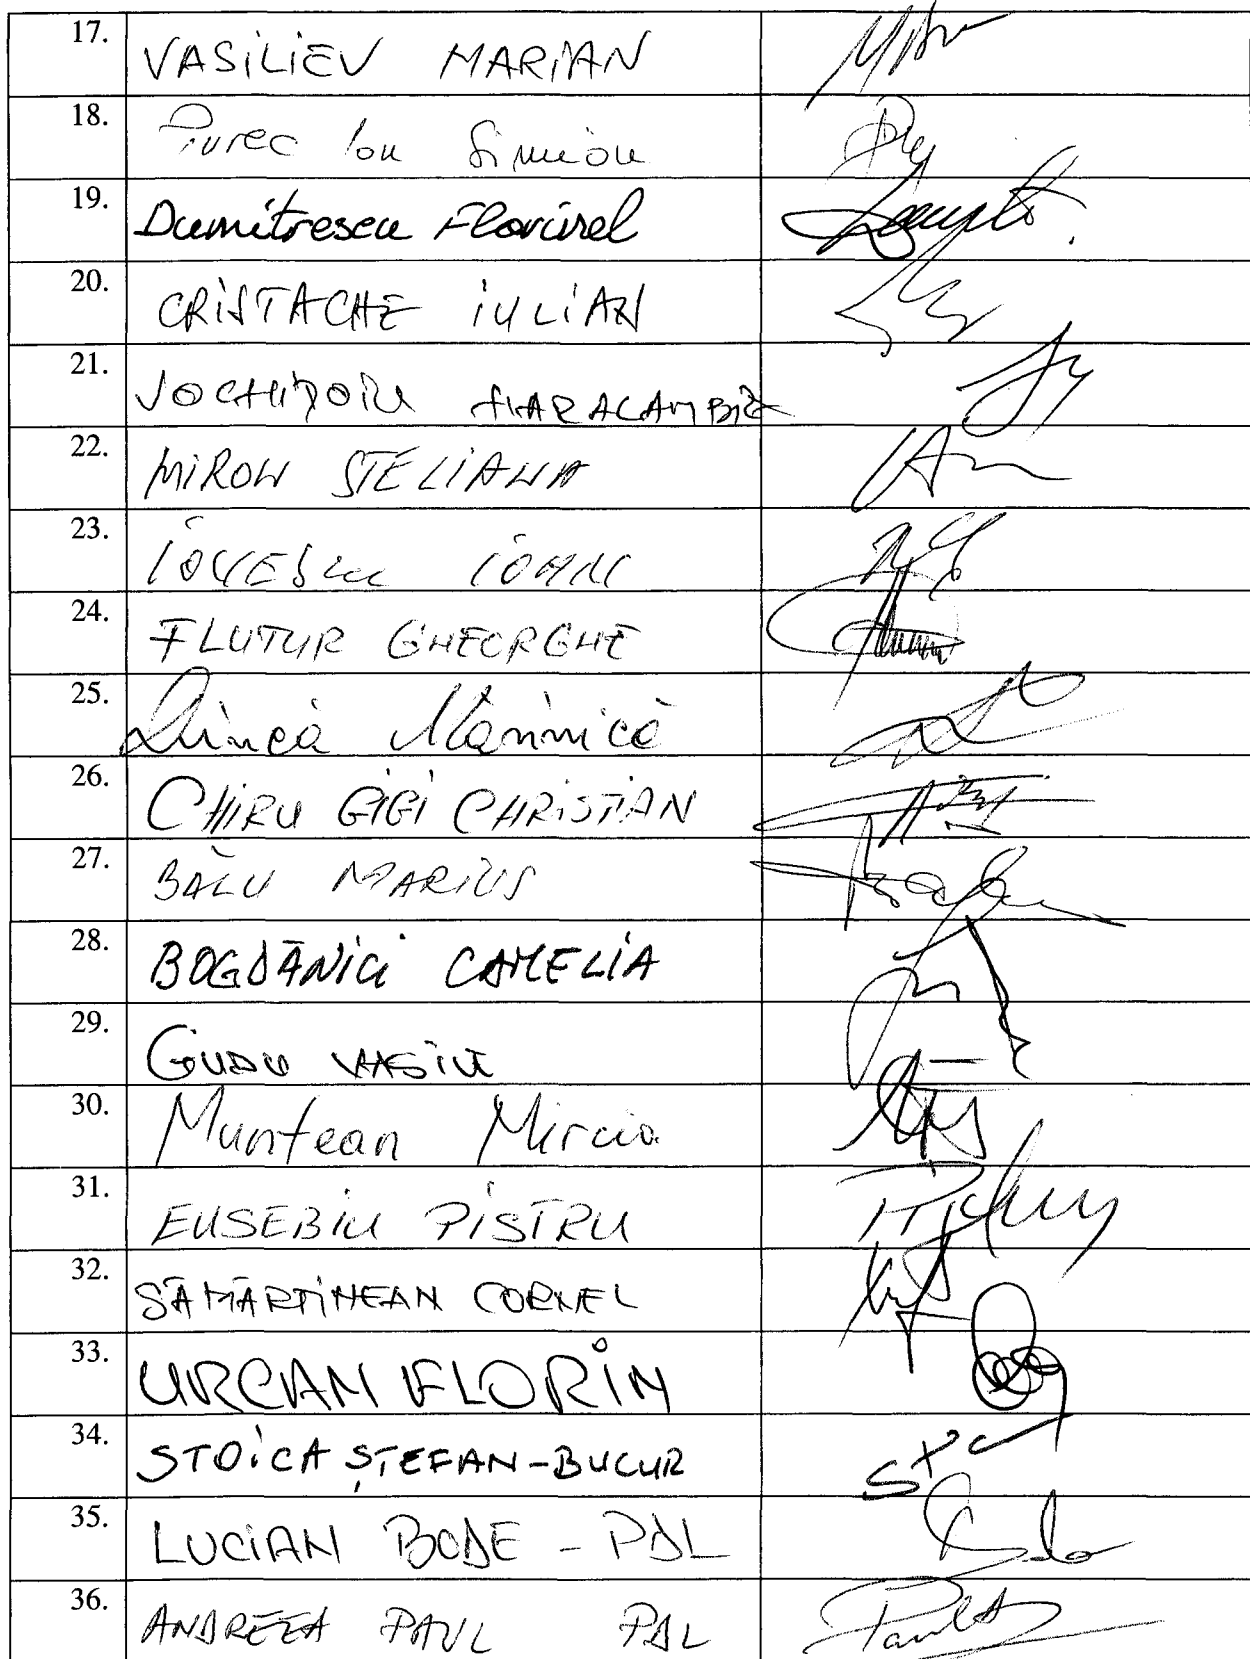 17. VASILIEV MARIAN
18. Purec Ion Simion
19. Dumitrescu Florinel
20. CRISTACHE IULIAN
21. VOCHIȚOIU HARALAMBIE
22. MIRON STELIANA
23. IOVESCU IOAN
24. FLUTUR GHEORGHE
25. Dincă Mărinică
26. CHIRU GIGI CHRISTIAN
27. BĂLU MARIUS
28. BOGDĂNICI CAMELIA
29. GUDU VASILE
30. Muntean Mircia
31. EUSEBIU PISTRU
32. SĂMĂRTINEAN CORNEL
33. URCAN FLORIN
34. STOICA ȘTEFAN-BUCUR
35. LUCIAN BODE - PDL
36. ANDREEA PAUL PDL